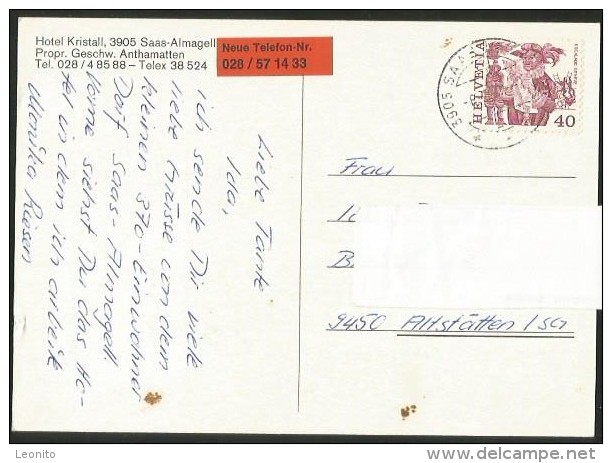 Hotel Kristall, 3905 Saas-Almagell
Propr. Geschw. Anthamatten
Tel. 028 / 4 85 88 – Telex 38 524
Neue Telefon-Nr.
028 / 57 14 33
HELVETIA
40
3905 SAAS
Liebe Tante
Ida,
ich sende Dir viele
liebe Grüsse von dem
kleinen 370-Einwohner
Dorf Saas-Almagell.
Vorne siehst Du das Ho-
tel in dem ich arbeite
Monika
Frau
9450 Altstätten / SG
Leonito
www.delcampe.net